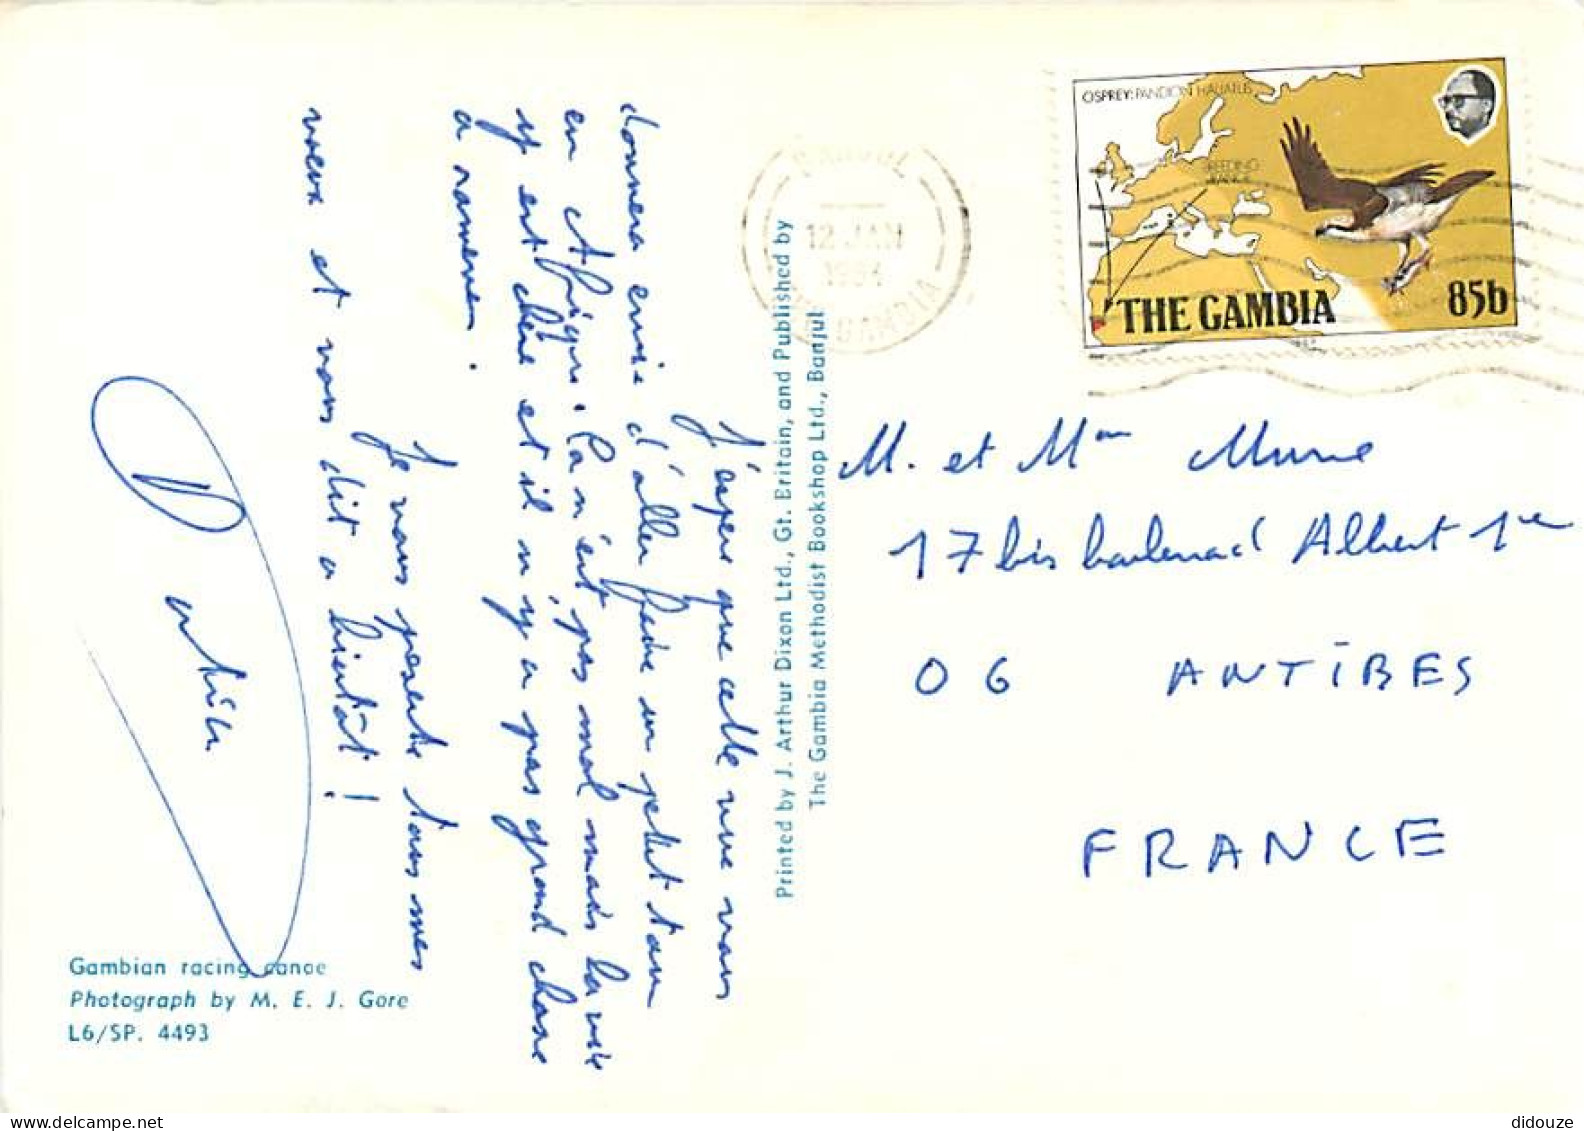 J'espere que cette vue vous
donnera envie d'aller faire un petit tour
en Afrique. Ca n'est pas mal mais la vie
y est chère et il n'y a pas grand chose
a ramener.
Je vous presente tous mes
voeux et vous dit a bientôt !
Patrick
Gambian racing canoe
Photograph by M. E. J. Gore
L6/SP. 4493
Printed by J. Arthur Dixon Ltd., Gt. Britain, and Published by
The Gambia Methodist Bookshop Ltd., Banjul
BANJUL
12 JAN
1984
GAMBIA
OSPREY: PANDION HALIAETUS
BREEDING
RANGE
THE GAMBIA 85b
M. et Mme
17 bis boulevard Albert 1er
06 ANTIBES
FRANCE
didouze